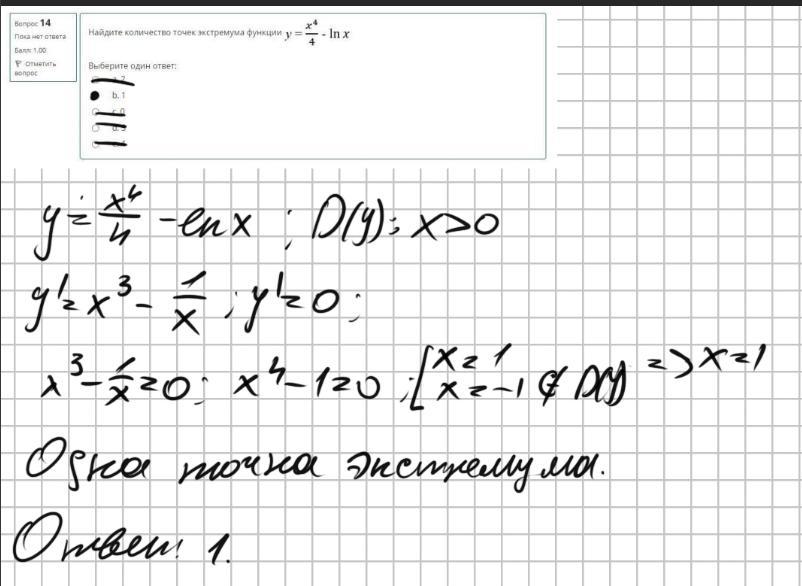 Вопрос 14
Пока нет ответа
Балл: 1,00
Отметить
вопрос
Найдите количество точек экстремума функции y = x⁴/4 - ln x
Выберите один ответ:
b. 1
y = x⁴/4 - ln x ; D(y): x>0
y' = x³ - 1/x ; y' = 0 ;
x³ - 1/x = 0 ; x⁴ - 1 = 0 ; [x = 1
x = -1 ∉ D(y) => x = 1
Одна точка экстремума.
Ответ: 1.